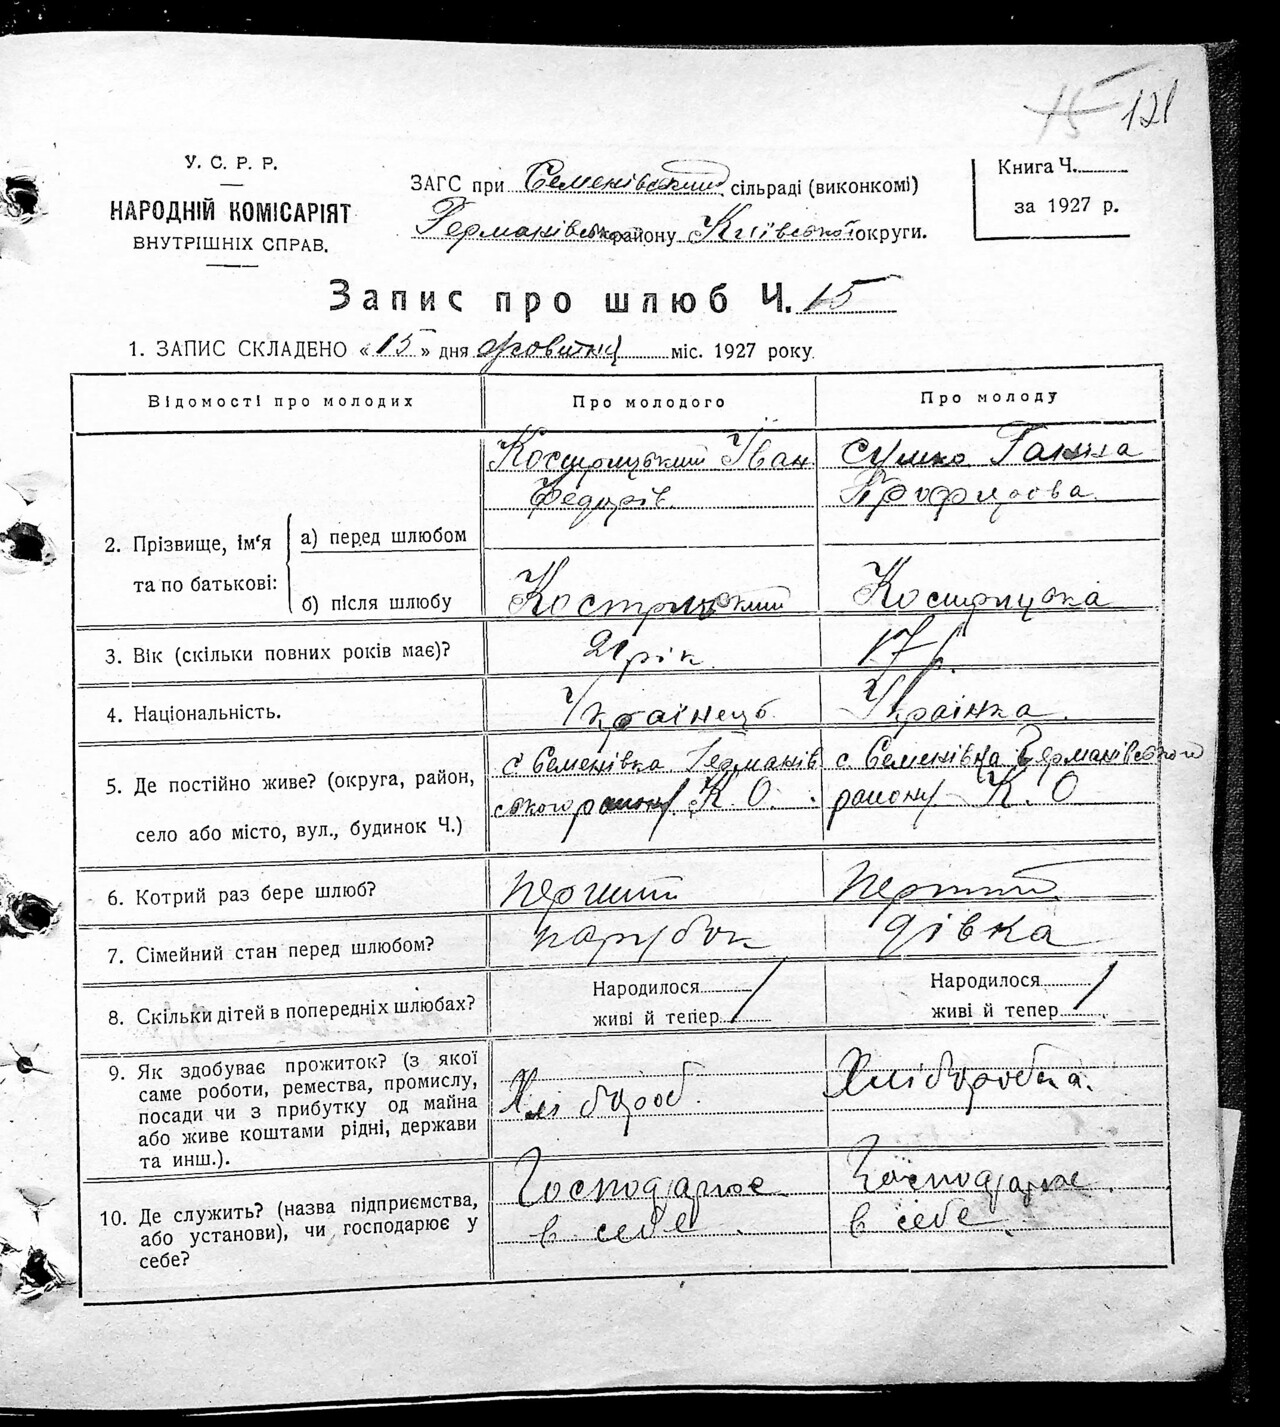 15 121
У. С. Р. Р.
НАРОДНІЙ КОМІСАРІЯТ
ВНУТРІШНІХ СПРАВ.
ЗАГС при Семенівський сільраді (виконкомі)
Германівського району Київської округи.
Книга Ч.
за 1927 р.
Запис про шлюб Ч. 15
1. ЗАПИС СКЛАДЕНО « 15 » дня міс. 1927 року
Відомості про молодих
Про молодого
Про молоду
2. Прізвище, ім'я та по батькові:
а) перед шлюбом
Кострицький Іван
Федорів.
Сушко Ганна
б) після шлюбу
Кострицкий
Кострицька
3. Вік (скільки повних років має)?
21 рік
17 р.
4. Національність.
Українець
Українка.
5. Де постійно живе? (округа, район,
село або місто, вул., будинок Ч.)
с Семенівка Германів
ського району К. О.
с. Семенівка Германівського
району К. О
6. Котрий раз бере шлюб?
перший
перший
7. Сімейний стан перед шлюбом?
парубок
дівка
8. Скільки дітей в попередніх шлюбах?
Народилося
живі й тепер
Народилося
живі й тепер
9. Як здобуває прожиток? (з якої
саме роботи, ремества, промислу,
посади чи з прибутку од майна
або живе коштами рідні, держави
та инш.).
Хлібороб.
Хліборобка.
10. Де служить? (назва підприємства,
або установи), чи господарює у
себе?
Господарює
в себе
Господарює.
в себе